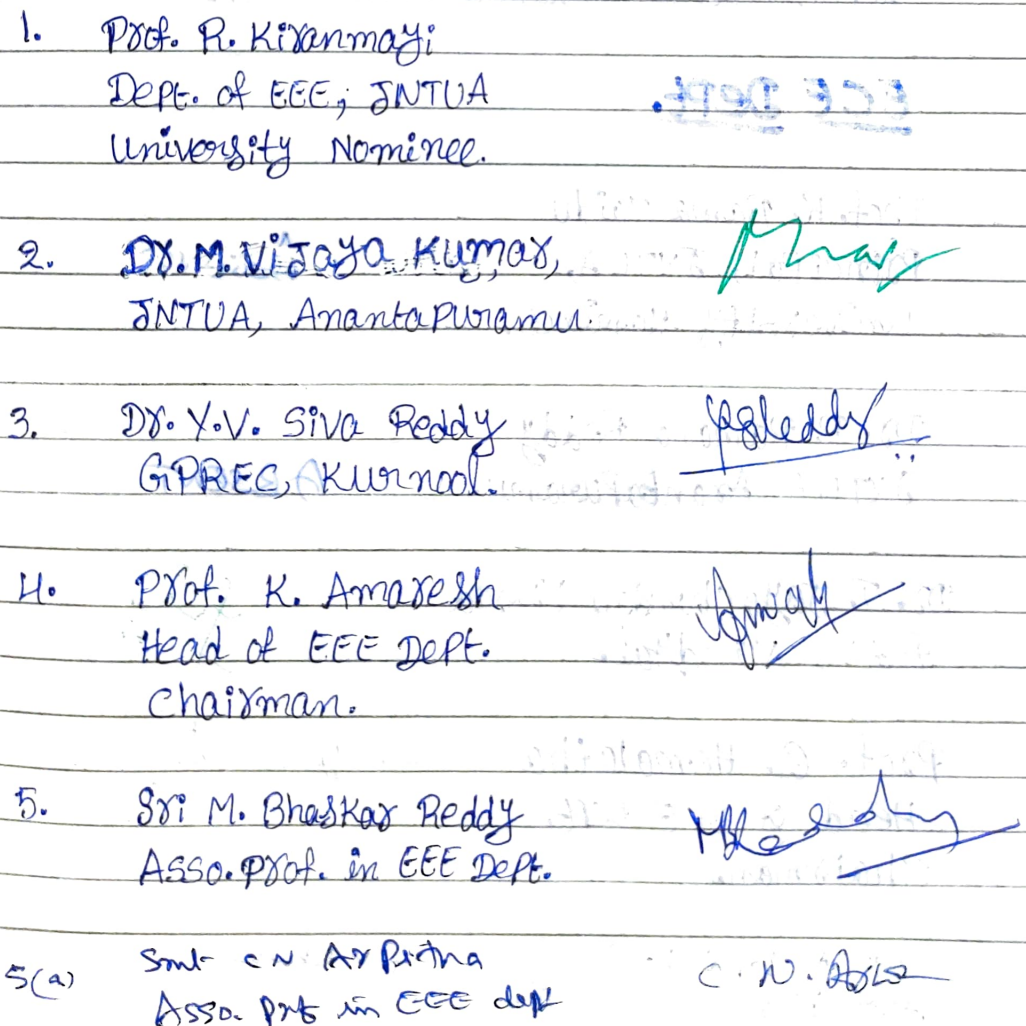 1. Prof. R. Kiranmayi
Dept. of EEE, JNTUA
University Nominee.
2. Dr. M. Vijaya Kumar,
JNTUA, Anantapuramu.
3. Dr. Y.V. Siva Reddy
GPREC, Kurnool.
4. Prof. K. Amaresh
Head of EEE Dept.
Chairman.
5. Sri M. Bhaskar Reddy
Asso. Prof. in EEE Dept.
5(a) Smt C N Arpitha C. N.
Asso. Prof in EEE dept